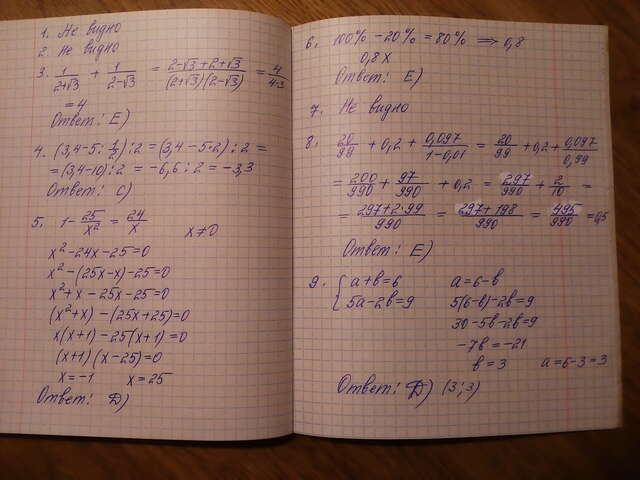 1. Не видно
2. Не видно
3. 1/(2+√3) + 1/(2-√3) = (2-√3+2+√3)/((2+√3)(2-√3)) = 4/(4-3)
= 4
Ответ: E)
4. (3,4-5:1/2):2 = (3,4-5·2):2 =
= (3,4-10):2 = -6,6:2 = -3,3
Ответ: C)
5. 1-25/x² = 24/x x≠0
x²-24x-25=0
x²-(25x-x)-25=0
x²+x-25x-25=0
(x²+x)-(25x+25)=0
x(x+1)-25(x+1)=0
(x+1)(x-25)=0
x=-1 x=25
Ответ: D)
6. 100%-20%=80% ⟹ 0,8
0,8x
Ответ: E)
7. Не видно
8. 20/99 + 0,2 + 0,097/(1-0,01) = 20/99 + 0,2 + 0,097/0,99
= 200/990 + 97/990 + 0,2 = 297/990 + 2/10 =
= (297+2·99)/990 = (297+198)/990 = 495/990 = 0,5
Ответ: E)
9. { a+b=6 a=6-b
5a-2b=9 5(6-b)-2b=9
30-5b-2b=9
-7b=-21
b=3 a=6-3=3
Ответ: D) (3;3)